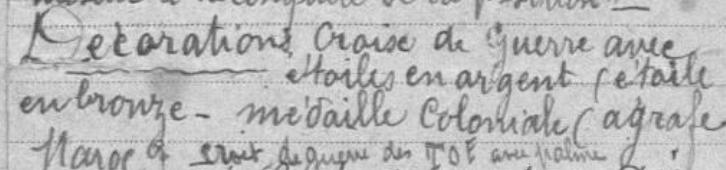 Décorations Croise de Guerre avec
étoiles en argent (étoile
en bronze - médaille Coloniale (agrafe
Maroc croix de guerre des TOE avec palme